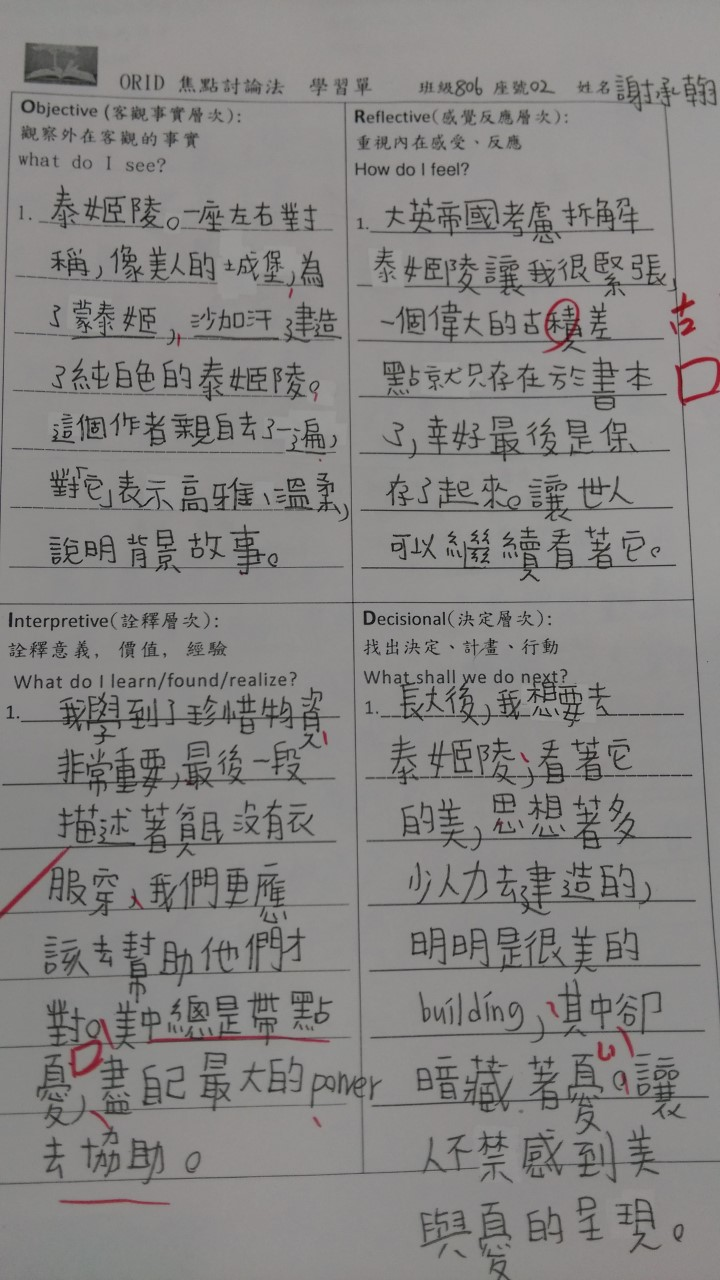 ORID 焦點討論法 學習單 班級806 座號02 姓名謝承翰
Objective (客觀事實層次):
觀察外在客觀的事實
what do I see?
1. 泰姬陵。一座左右對
稱,像美人的城堡,為
了蒙泰姬,沙加汗建造
了純白色的泰姬陵。
這個作者親自去了一遍,
對「它」表示高雅、溫柔,
說明背景故事。
Reflective(感覺反應層次):
重視內在感受、反應
How do I feel?
1. 大英帝國考慮拆解
泰姬陵讓我很緊張,
一個偉大的古積差
點就只存在於書本
了,幸好最後是保
存了起來。讓世人
可以繼續看著它。
古
Interpretive(詮釋層次):
詮釋意義, 價值, 經驗
What do I learn/found/realize?
1. 我學到了珍惜物資
非常重要,最後一段
描述著貧民沒有衣
服穿,我們更應
該去幫助他們才
對。美中總是帶點
憂,盡自己最大的power
去協助。
Decisional(決定層次):
找出決定、計畫、行動
What shall we do next?
1. 長大後,我想要去
泰姬陵,看著它
的美,思想著多
少人力去建造的,
明明是很美的
building,其中卻
暗藏著憂。讓
人不禁感到美
與憂的呈現。